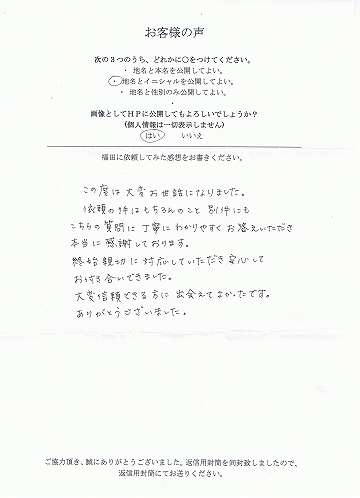 お客様の声
次の3つのうち、どれかに○をつけてください。
・ 地名と本名を公開してよい。
・ 地名とイニシャルを公開してよい。
・ 地名と性別のみ公開してよい。
・
画像としてHPに公開してもよろしいでしょうか?
(個人情報は一切表示しません)
はい いいえ
福田に依頼してみた感想をお書きください。
この度は大変お世話になりました。
依頼の件はもちろんのこと 別件にも
こちらの質問に丁寧にわかりやすくお答えいただき
本当に感謝しております。
終始親切に対応していただき安心して
おつき合いできました。
大変信頼できる方に出会えてよかったです。
ありがとうございました。
ご協力頂き、誠にありがとうございました。返信用封筒を同封致しましたので、
返信用封筒にてお送りください。